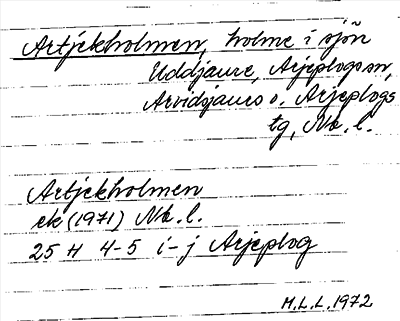 Artjekholmen, holme i sjön
Uddjaure, Arjeplogs sn,
Arvidsjaurs o. Arjeplogs
tg, Nb. l.
Artjekholmen
ek (1971) Nb. l.
25 H 4-5 i-j Arjeplog
M.L.L. 1972